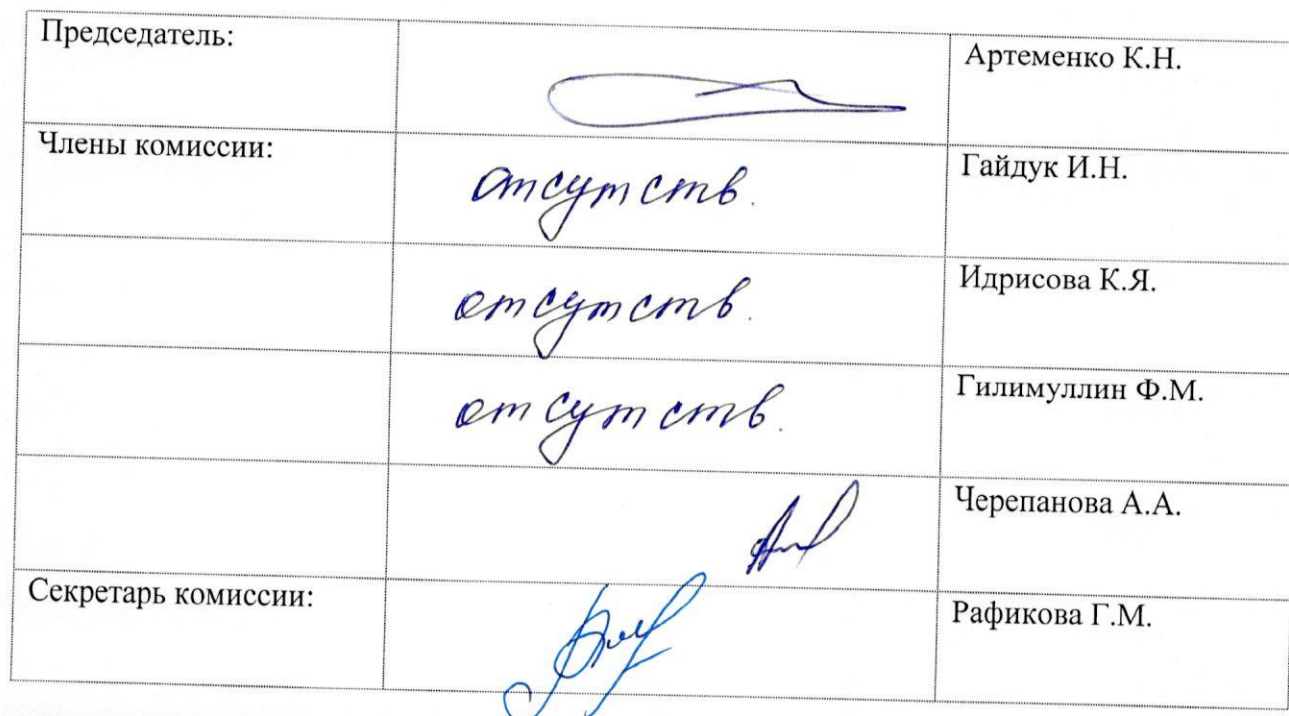 Председатель:
Артеменко К.Н.
Члены комиссии:
отсутств.
Гайдук И.Н.
отсутств.
Идрисова К.Я.
отсутств.
Гилимуллин Ф.М.
Черепанова А.А.
Секретарь комиссии:
Рафикова Г.М.